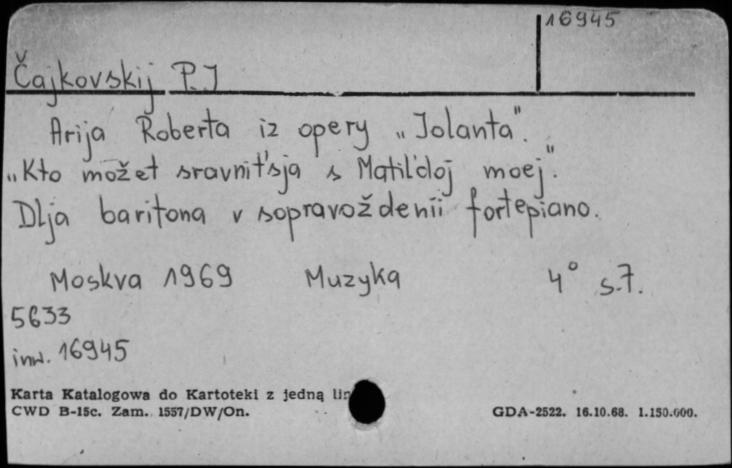 16945
Čajkovskij P.I
Arija Roberta iz opery „Iolanta".
„Kto možet sravnit'sja s Matil'doj moej".
Dlja baritona v sopravoždenii fortepiano.
Moskva 1969 Muzyka 4° s.7.
5633
inw. 16945
Karta Katalogowa do Kartoteki z jedną
CWD B-15c. Zam. 1557/DW/On. GDA-2522. 16.10.68. 1.150.000.